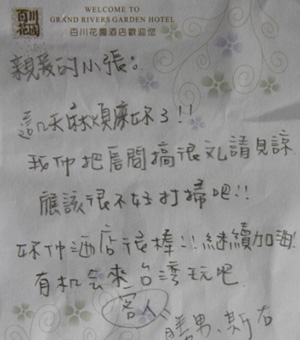 百川花園
WELCOME TO
GRAND RIVERS GARDEN HOTEL
百川花園酒店歡迎您
親愛的小張:
這几天麻煩妳了!!
我们把房間搞很乱請見諒
應該很不好打掃吧!!
妳们酒店很棒!!継續加油!
有机会來台湾玩吧
客人
勝男、斯右